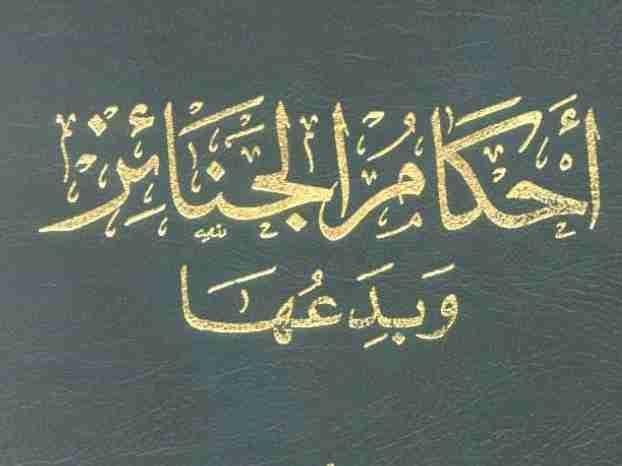 أَحْكَامُ الْجَنَائِزِ
وَبِدَعُهَا